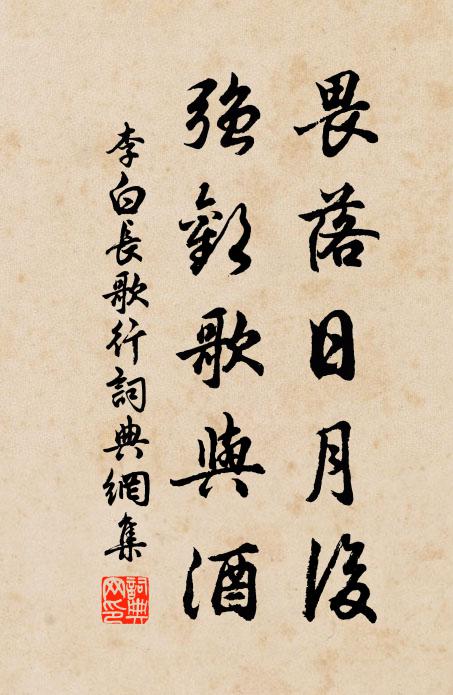 畏落日月後
強歡歌與酒
李白長歌行詞典網集
詞典網印